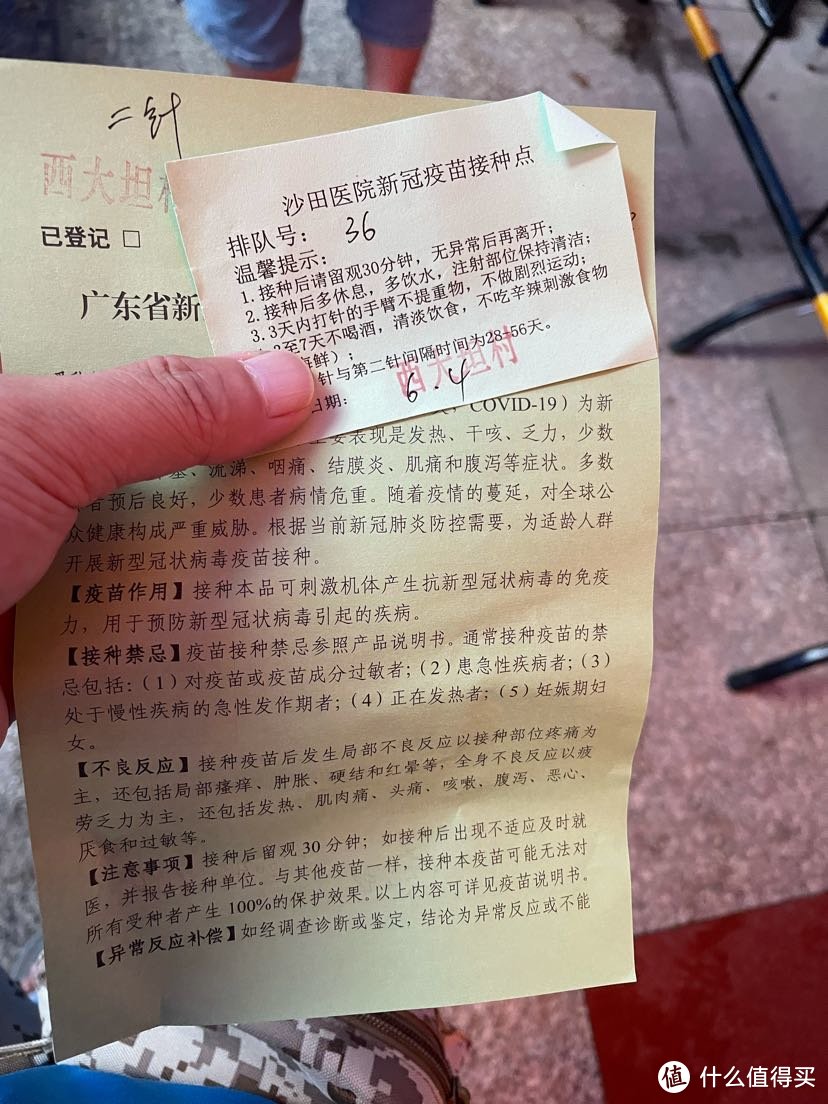 二针
西大坦
已登记 □
广东省新
沙田医院新冠疫苗接种点
排队号： 36
温馨提示：
1. 接种后请留观30分钟，无异常后再离开；
2. 接种后多休息，多饮水，注射部位保持清洁；
3. 3天内打针的手臂不提重物，不做剧烈运动；
至7天不喝酒，清淡饮食，不吃辛辣刺激食物
海鲜）；
针与第二针间隔时间为28-56天。
西大坦村
日期： 6.4
COVID-19）为新
主要表现是发热、干咳、乏力，少数
流涕、咽痛、结膜炎、肌痛和腹泻等症状。多数
者预后良好，少数患者病情危重。随着疫情的蔓延，对全球公
众健康构成严重威胁。根据当前新冠肺炎防控需要，为适龄人群
开展新型冠状病毒疫苗接种。
【疫苗作用】接种本品可刺激机体产生抗新型冠状病毒的免疫
力，用于预防新型冠状病毒引起的疾病。
【接种禁忌】疫苗接种禁忌参照产品说明书。通常接种疫苗的禁
忌包括：（1）对疫苗或疫苗成分过敏者；（2）患急性疾病者；（3）
处于慢性疾病的急性发作期者；（4）正在发热者；（5）妊娠期妇
女。
【不良反应】接种疫苗后发生局部不良反应以接种部位疼痛为
主，还包括局部瘙痒、肿胀、硬结和红晕等，全身不良反应以疲
劳乏力为主，还包括发热、肌肉痛、头痛、咳嗽、腹泻、恶心、
厌食和过敏等。
【注意事项】接种后留观 30 分钟；如接种后出现不适应及时就
医，并报告接种单位。与其他疫苗一样，接种本疫苗可能无法对
所有受种者产生 100%的保护效果。以上内容可详见疫苗说明书。
【异常反应补偿】如经调查诊断或鉴定，结论为异常反应或不能
值 什么值得买